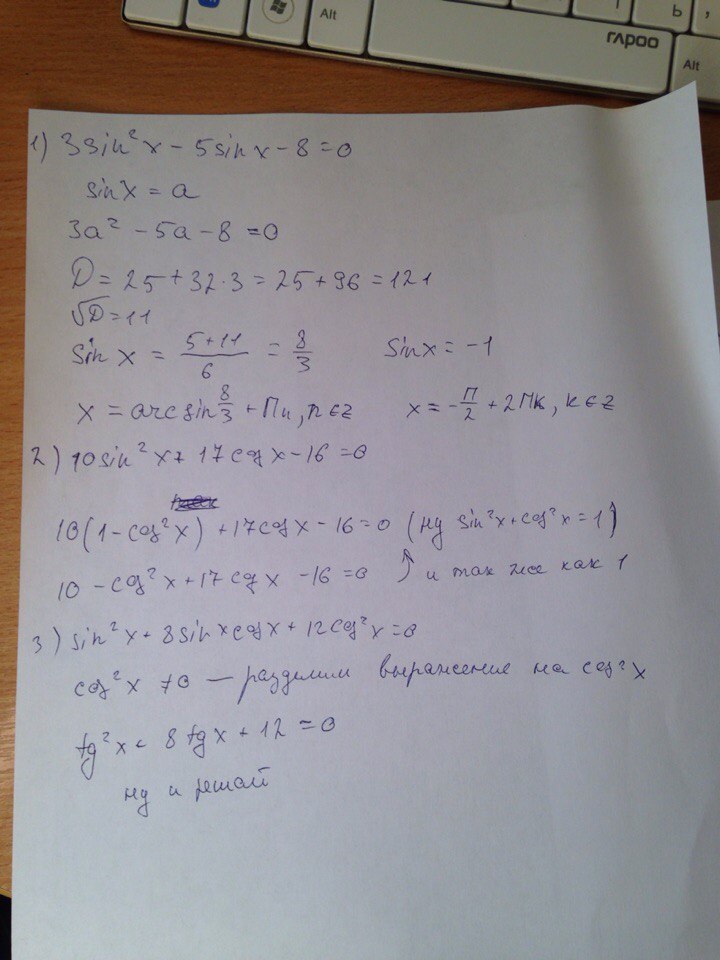 Alt
rapoo
Ь
Alt
1) 3sin²x - 5sinx - 8 = 0
sinx = a
3a² - 5a - 8 = 0
D = 25 + 32·3 = 25 + 96 = 121
√D = 11
sin x = (5+11)/6 = 8/3 sinx = -1
x = arcsin 8/3 + Пn, n∈z x = -П/2 + 2Пk, k∈z
2) 10sin²x + 17cosx - 16 = 0
10(1-cos²x) + 17cosx - 16 = 0 (ну sin²x + cos²x = 1)
10 - cos²x + 17cosx - 16 = 0 ↑ и так же как 1
3) sin²x + 8sinxcosx + 12cos²x = 0
cos²x ≠ 0 — разделим выражение на cos²x
tg²x + 8tgx + 12 = 0
ну и решай